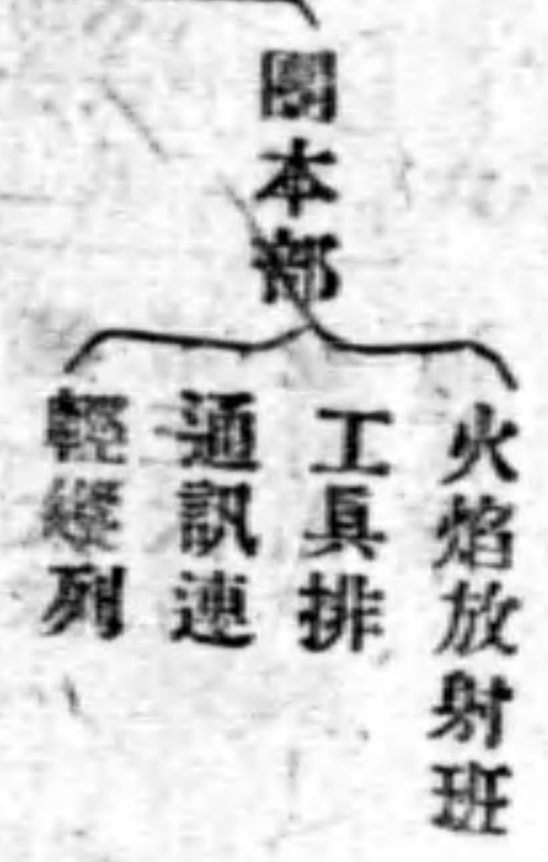 團本部
火焰放射班
工具排
通訊連
輕縱列